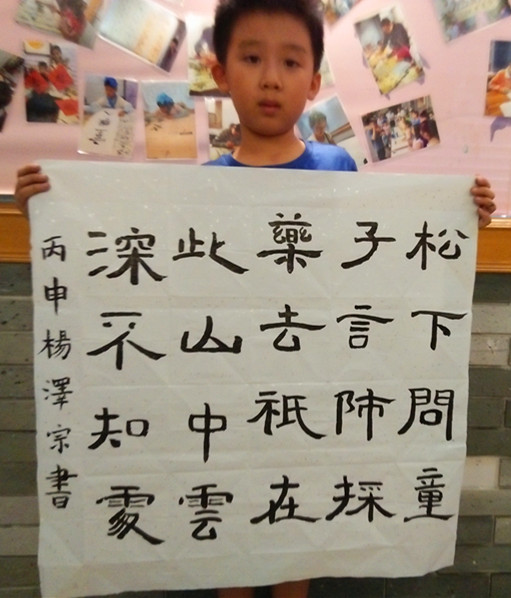 松下問童
子言師採
藥去祇在
此山中雲
深不知處
丙申楊澤宗書